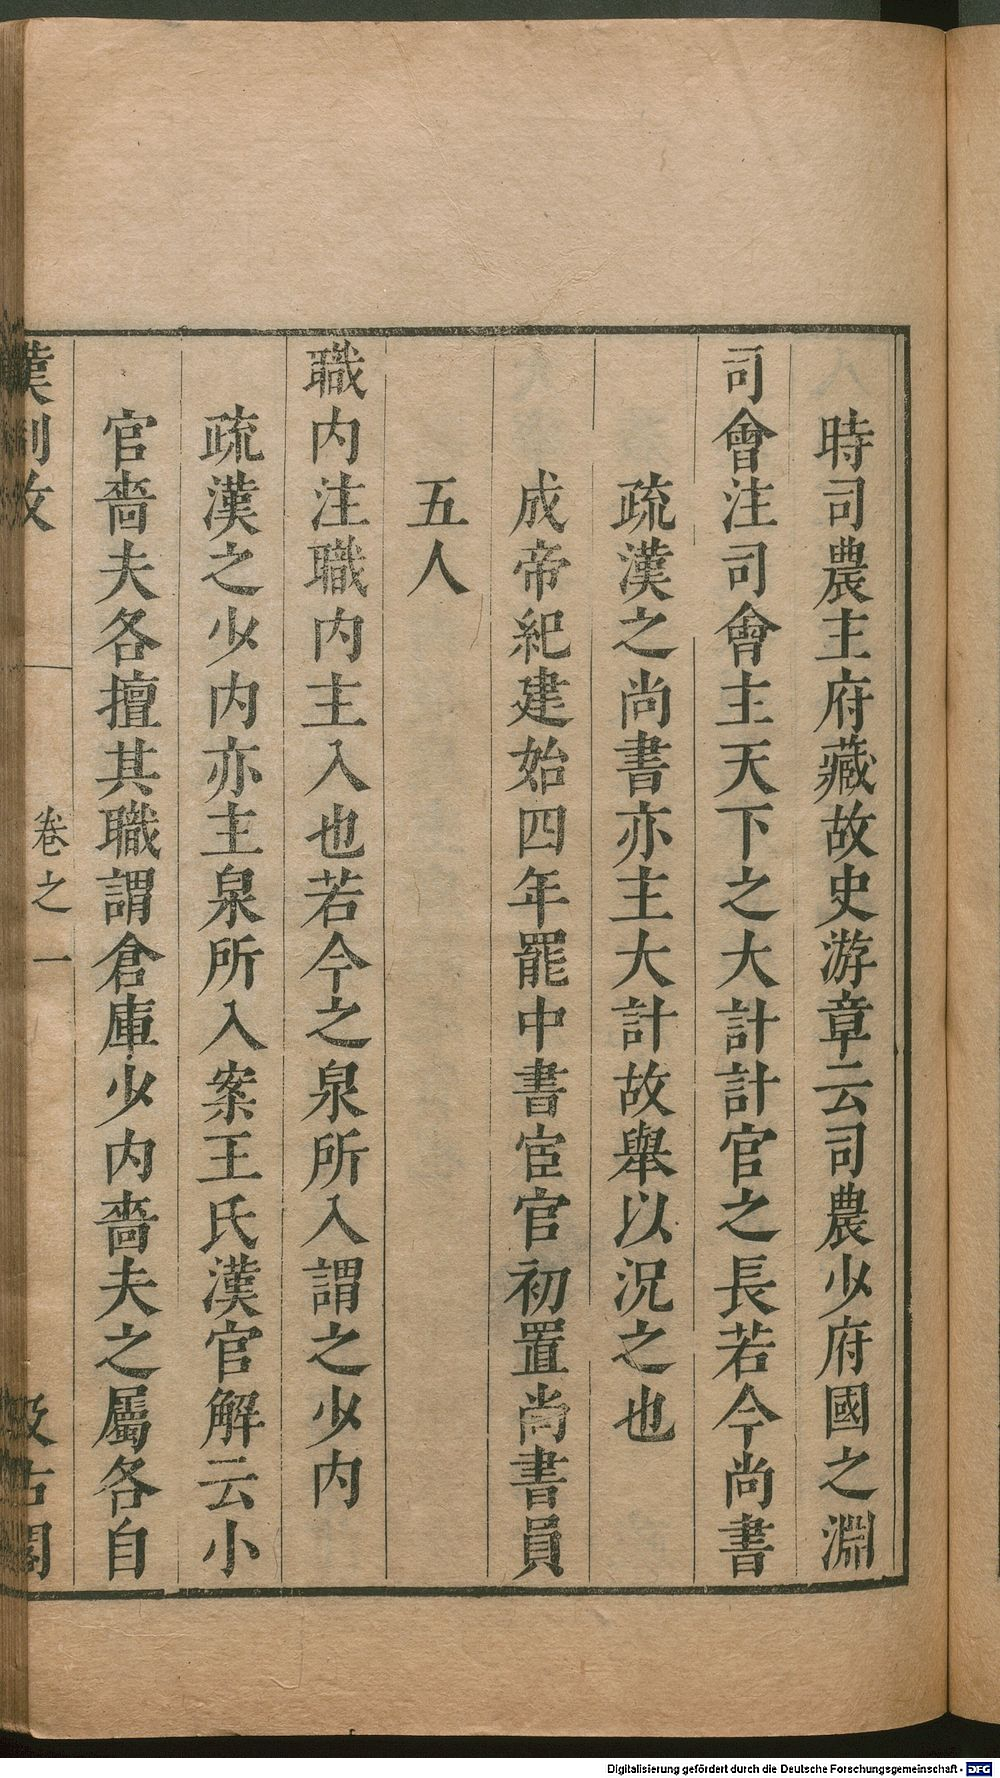 時司農主府藏故史游章云司農少府國之淵
司會注司會主天下之大計計官之長若今尚書
疏漢之尚書亦主大計故舉以況之也
成帝紀建始四年罷中書宦官初置尚書員
五人
職内注職内主入也若今之泉所入謂之少内
疏漢之少内亦主泉所入案王氏漢官解云小
官嗇夫各擅其職謂倉庫少内嗇夫之屬各自
漢制攷 卷之一 汲古閣
Digitalisierung gefördert durch die Deutsche Forschungsgemeinschaft - DFG